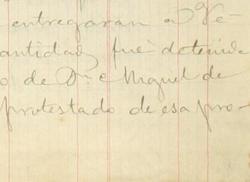 entregaran a Ve-
cantidad fué detenida
o de Dn. Miguel de
protestado de esa pro-